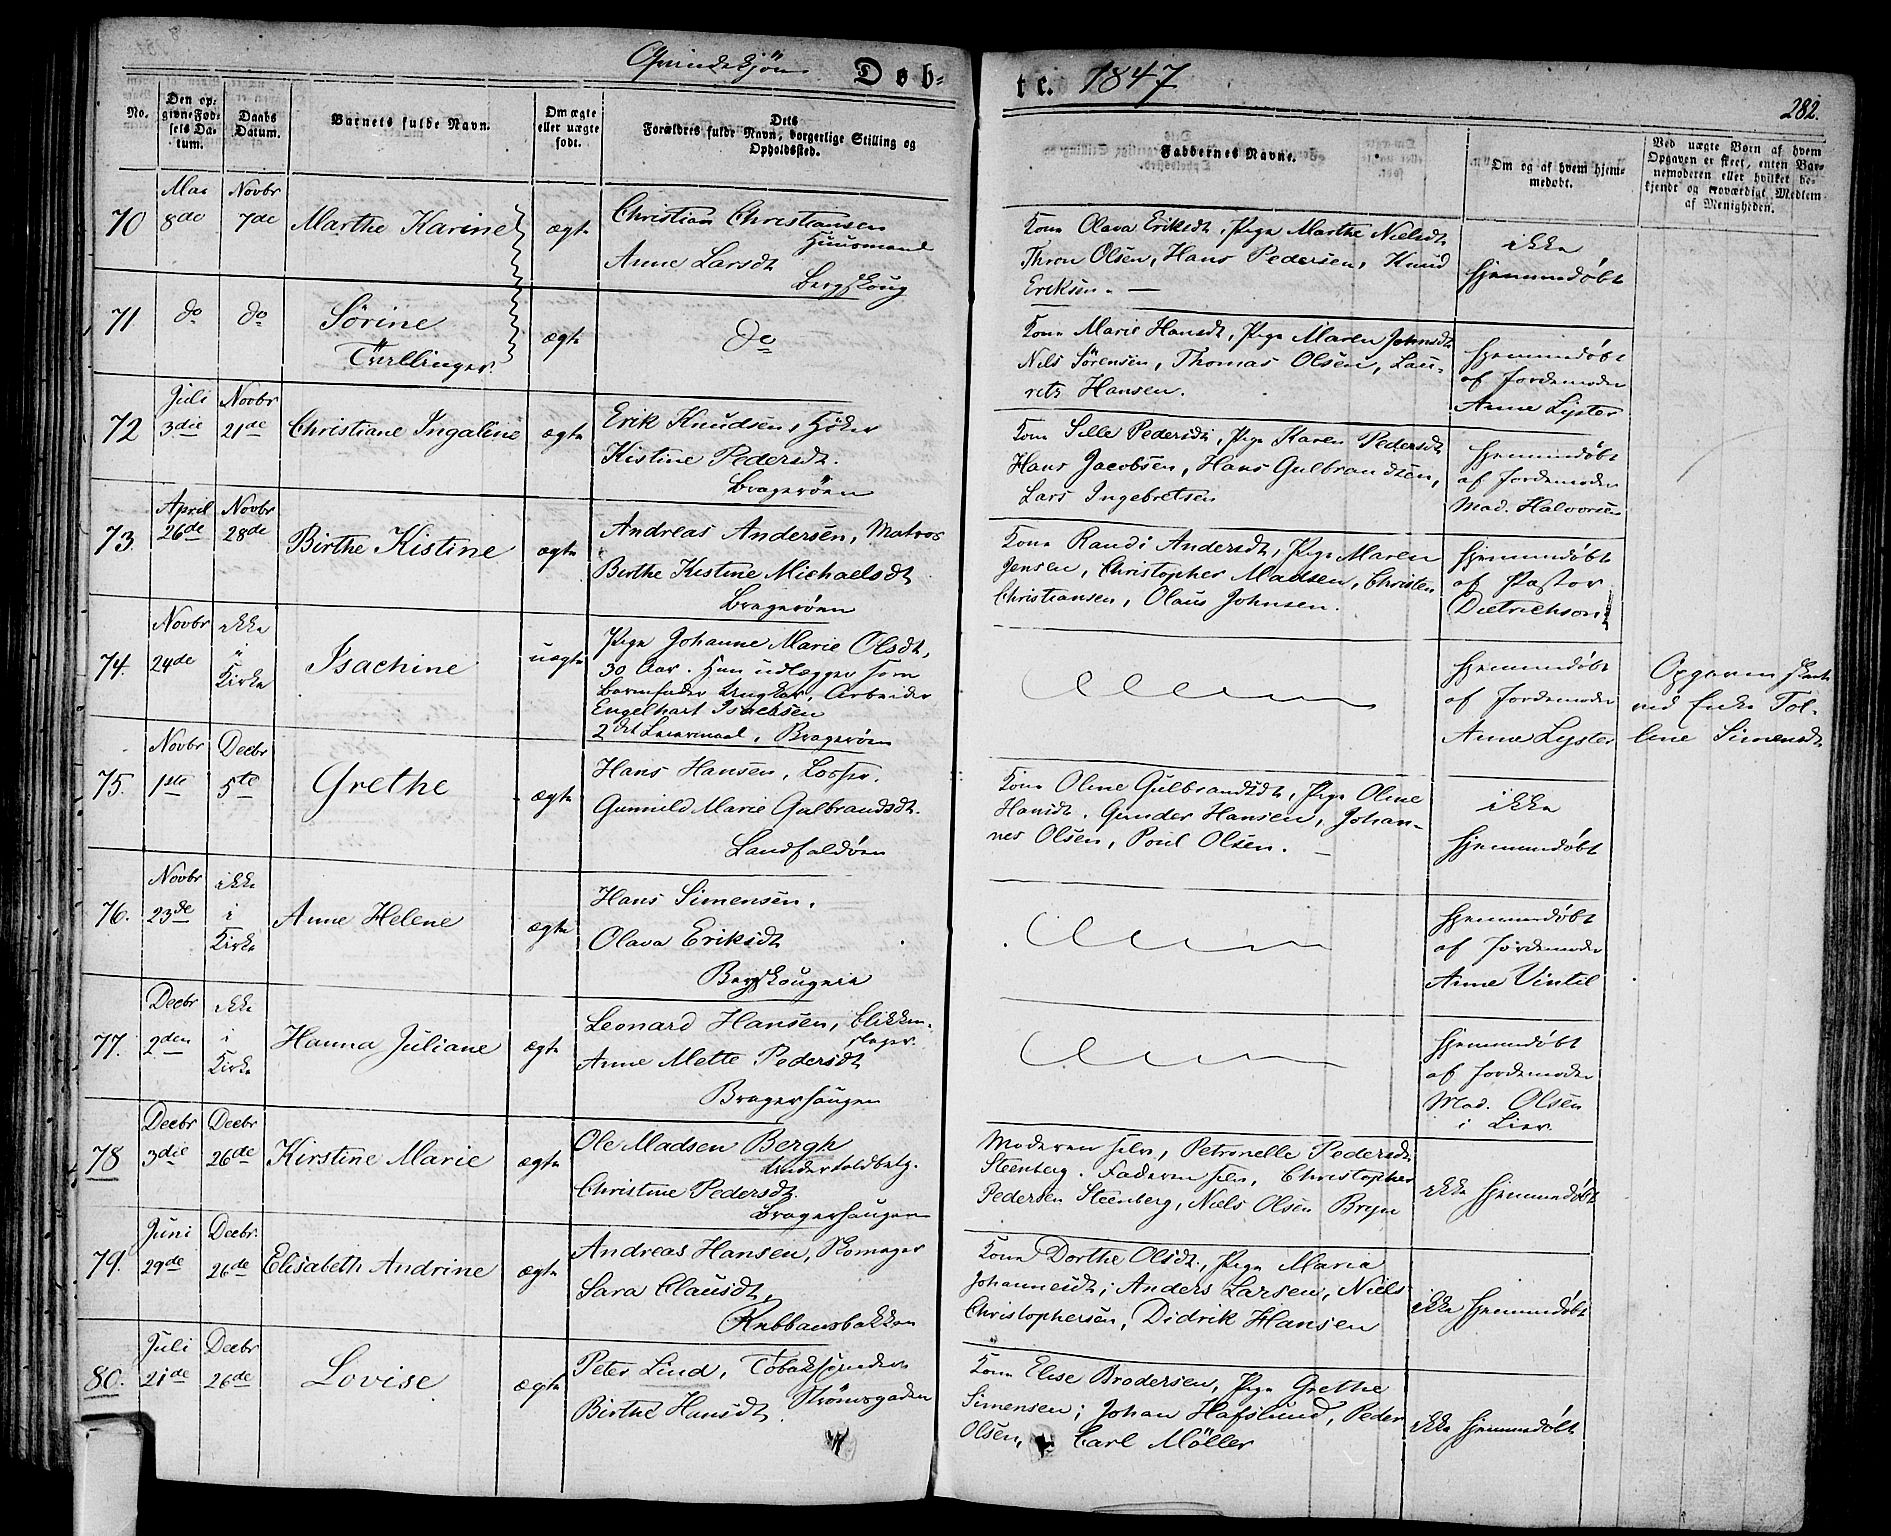 Qvindekjøn Døb-
te. 1847
282.
No.
Den op-
givne Fød-
sels Da-
tum.
Daabs
Datum.
Barnets fulde Navn.
Om ægte
eller uægte
født.
Dets
Forældres fulde Navn, borgerlige Stilling og
Opholdssted.
Faddernes Navne.
Om og af hvem hjem-
medøbt.
Ved uægte Børn af hvem
Opgaven er skeet, enten Bar-
nemoderen eller hvilket be-
kjendt og troværdigt Medlem
af Menigheden.
70 Mai 8de Novbr 7de Marthe Karine ægte
Christian Christiansen
Huusmand
Anne Larsdt
Bergskoug
Kone Olava Eriksdt, Pige Marthe Nielsdt
Thron Olsen, Hans Pedersen, Knud
Eriksen. —
ikke
hjemmedøbt
71 do do Sørine
Tvillinger.
ægte
do
Kone Marie Hansdt, Pige Maren Johnsdt
Nils Sörensen, Thomas Olsen, Lau-
ritz Hansen.
hjemmedøbt
af Jordemoder
Anne Lyster
72 Juli 3die Novbr 21de Christiane Ingaline ægte
Erik Knudsen, Høker
Kistine Pedersdt.
Bragerøen
Kone Sille Pedersdt, Pige Karen Pedersdt
Hans Jacobsen, Hans Gulbrandsen,
Lars Ingebretsen
hjemmedøbt
af Jordemoder
Mad. Halvorsen
73. April 26de Novbr 28de Birthe Kistine ægte
Andreas Andersen, Matros
Birthe Kistine Michaelsdt
Bragerøen
Kone Randi Andersdt, Pige Maren
Jensen, Christopher Madsen, Christen
Christiansen, Olaus Johnsen.
hjemmedøbt
af Pastor
Dietrichson
74. Novbr 24de ikke i Kirke Isachine uægte
Pige Johanne Marie Olsdt,
30 Aar. Hun udlægger som
Barnefader Ungkar, Arbeider
Engelhart Isachsen
2det Leiermaal, Bragerøen
hjemmedøbt
af Jordemoder
Anne Lyster
Opgaven skeet
ved Enke Tol-
line Simensdt
75. Novbr 1ste Decbr 5te Grethe ægte
Hans Hansen,
Gunnild Marie Gulbrandsdt.
Landfaldøen
Kone Oline Gulbrandsdt, Pige Oline
Hansdt. Gunder Hansen, Johan-
nes Olsen, Poul Olsen. —
ikke
hjemmedøbt
76. Novbr 23de ikke i Kirke Anne Helene ægte
Hans Simensen.
Olava Eriksdt
Bergskougeie
hjemmedøbt
af Jordemoder
Anne Vintil
77. Decbr 2den ikke i Kirke Hanna Juliane ægte
Leonard Hansen, blikken-
slager.
Anne Mette Pedersdt
Bragerhaugen
hjemmedøbt
af Jordemoder
Mad. Olsen
i Lier.
78 Decbr 3die Decbr 26de Kirstine Marie ægte
Ole Madsen Bergh
Undertoldbetj.
Christine Pedersdt.
Bragerhaugen
Moderen selv, Petronelle Pedersdt
Steenberg. Faderen selv, Christopher
Pedersen Steenberg, Niels Olsen Bryn
ikke hjemmedøbt
79. Juni 29de Decbr. 26de Elisabeth Andrine ægte
Andreas Hansen, Skomager
Sara Clausdt.
Kobbausbakken
Kone Dorthe Olsdt., Pige Maria
Johannesdt; Anders Larsen, Niels
Christophersen, Didrik Hansen
ikke hjemmedøbt
80. Juli 21de Decbr 26de Lovise ægte
Peter Lind, Tobakspinder
Birthe Hansdt. Strömsgaden
Kone Elise Brodersen, Pige Grethe
Simensen; Johan Hafslund, Peder
Olsen, Carl Möller
ikke hjemmedøbt